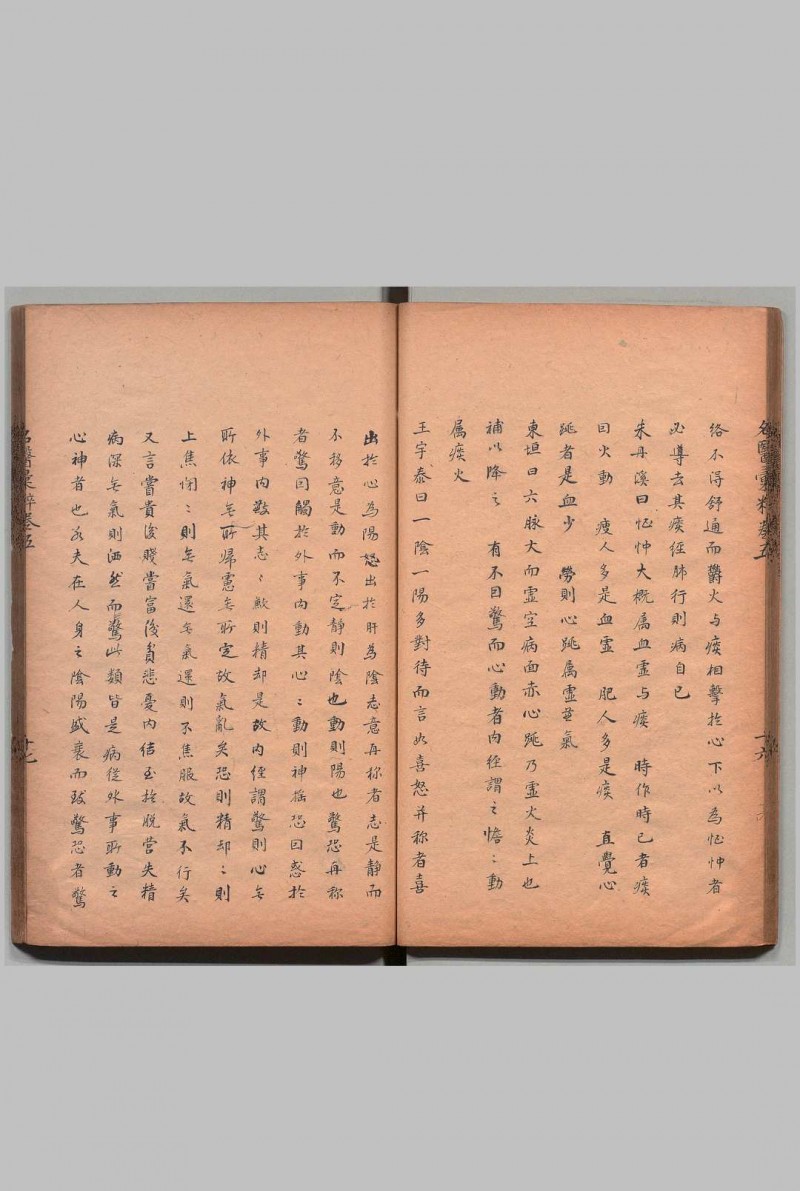 絡不得舒通而欝火与痰相擊於心下以為怔忡者
必導去其痰经肺行則病自已
朱丹溪曰怔忡大概属血虚与痰　時作時已者痰
因火動　瘦人多是血虚　肥人多是痰　直覺心
跳者是血少　勞則心跳属虚甚氣
東垣曰六脉大而虚空病面赤心跳乃虚火炎上也
補以降之　有不因驚而心動者内径謂之憺〻動
属痰火
王宇泰曰一陰一陽多對待而言如喜怒并称者喜
出於心為陽怒出於肝為陰志意再称者志是静而
不移意是動而不定静則陰也動則陽也驚恐再称
者驚因觸於外事内動其心〻動則神摇恐因惑於
外事内歉其志〻歉則精却是故内径謂驚則心无
所依神无所帰慮无所定故氣亂矣恐則精却〻則
上焦闭〻則无氣還无氣還則下焦脹故氣不行矣
又言嘗貴後賤嘗富後貧悲憂内结至於脱营失精
病深无氣則洒然而驚此類皆是病從外事所動之
心神者也若夫在人身之陰陽盛衰而致驚恐者驚
十六
十七